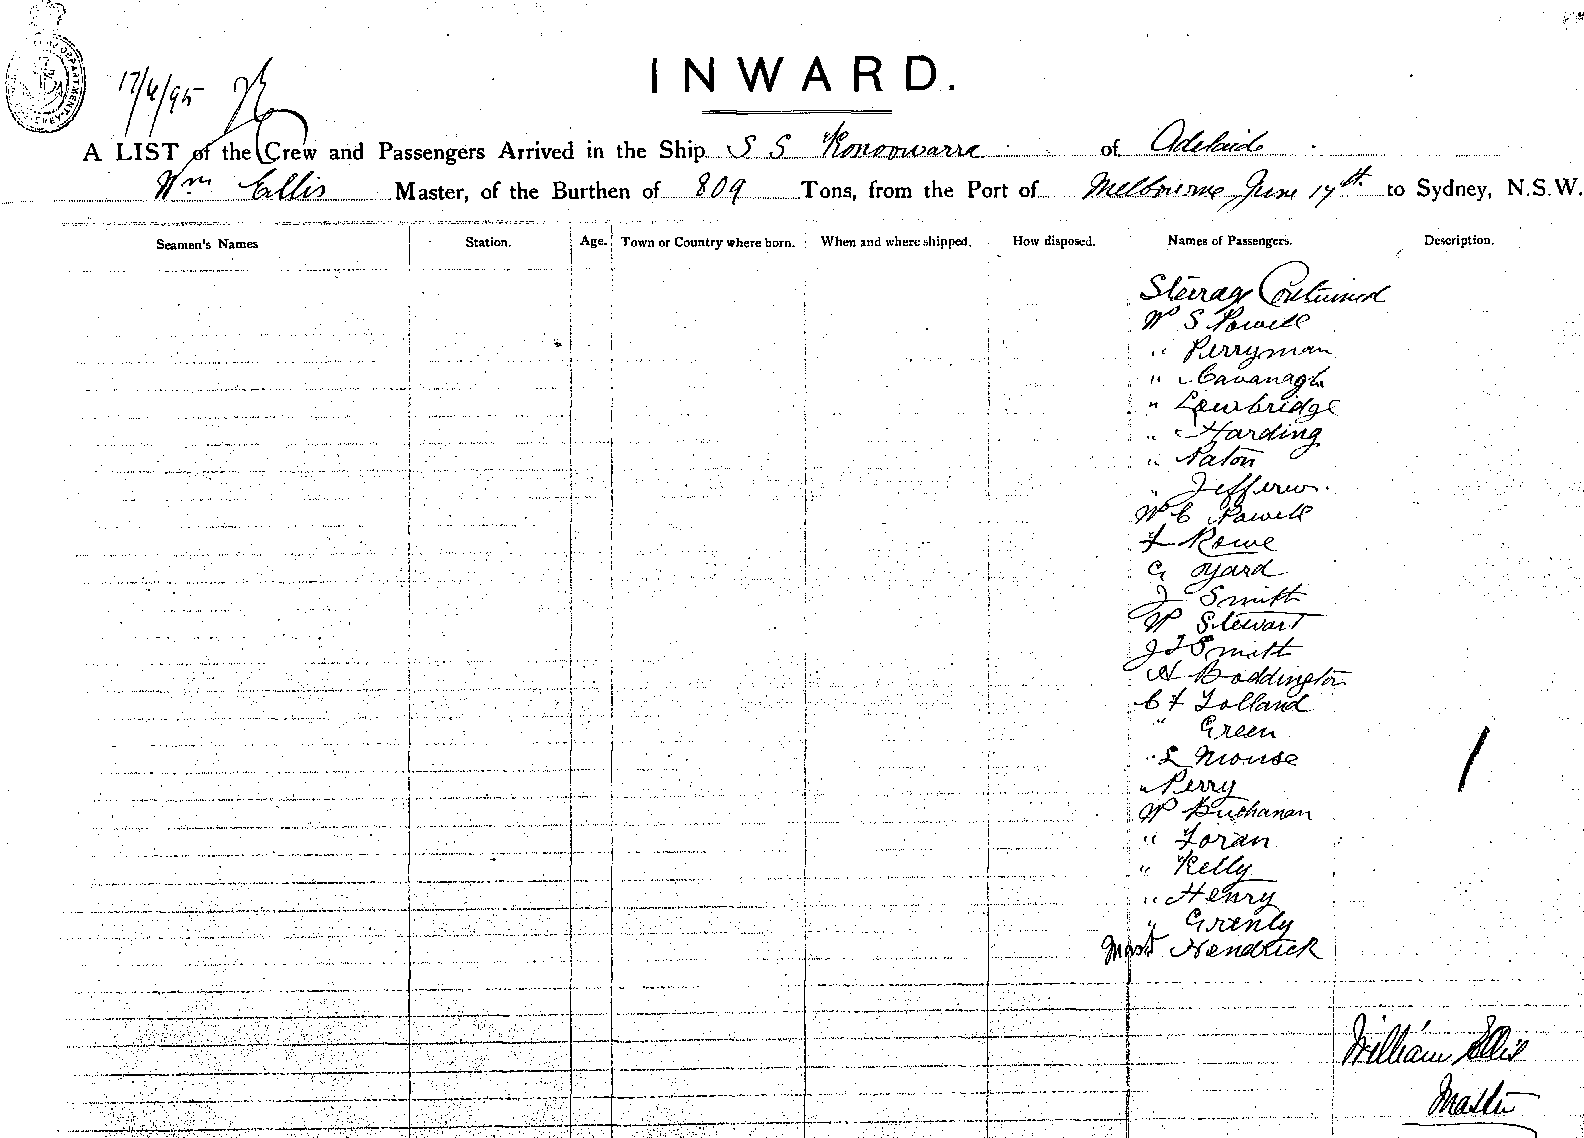 INWARD.
17/6/95
A LIST of the Crew and Passengers Arrived in the Ship S S Konoowarra of Adelaide
Wm Ellis Master, of the Burthen of 809 Tons, from the Port of Melbourne June 17th to Sydney, N.S.W.
Seamen's Names Station. Age. Town or Country where born. When and where shipped. How disposed. Names of Passengers. Description.
Steerage Continued
W S Powell
" Perryman
" Cavanagh
" Lowbridge
" Harding
" Paton
" Jefferies.
W C Powell
F Rowe
G Yard
J Smith
W Stewart
J T Smith
A Boddington
C F Tolland
" Green
" L Mouse
" Perry
W Buchanan
" Foran
" Kelly
" Henry
" Grenly
Mast Hendrick
William Ellis
Master